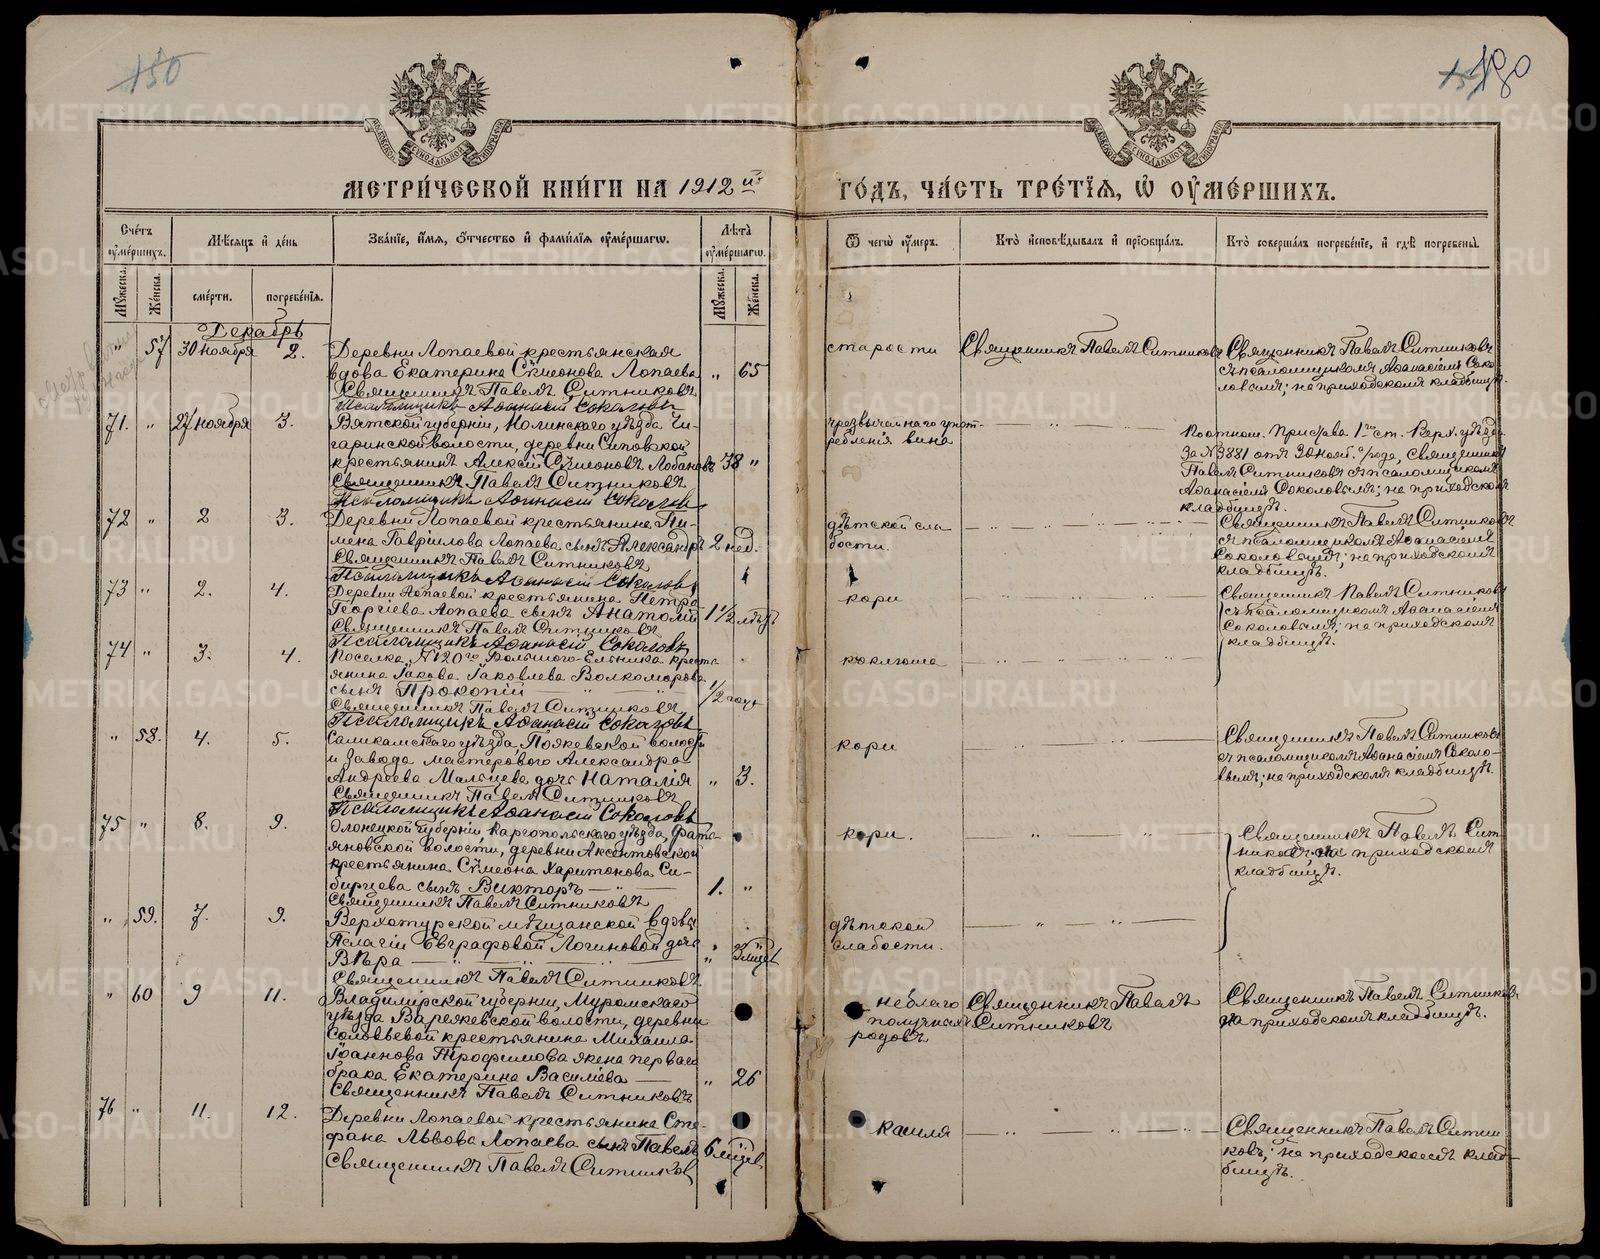 150
180
МЕТРИ́ЧЕСКОЙ КНИ́ГИ НА 1912 й
ГО́ДЪ, ЧА́СТЬ ТРЕ́ТЇѦ, Ѿ ОУМЕ́РШИХЪ.
Сче́тъ оуме́ршихъ.
Мѣ́сѧцъ и҆ де́нь
Зва́нїе, и҆́мѧ, ѻ҆́тчество и҆ фамилїѧ оуме́ршагѡ.
Лѣ́та оуме́ршагѡ.
Ѿ чегѡ̀ оу҆́меръ.
Кто̀ и҆сповѣ́дывалъ и҆ прїѡбща́лъ.
Кто̀ соверша́лъ погребе́нїе, и҆ гдѣ̀ погребены̀.
Мꙋ́жеска.
Же́нска.
сме́рти.
погребе́нїѧ.
Мꙋ́жеска.
Же́нска.
Декабрь
" 57 30 ноября 2. Деревни Лопаевой крестьянская
вдова Екатерина Сѵмеонова Лопаева " 65
Священникъ Павелъ Ситниковъ
Псаломщикъ Аѳанасій Соколовъ
старости
Священникъ Павелъ Ситниковъ
Священникъ Павелъ Ситниковъ
съ псаломщикомъ Аѳанасіемъ Соко-
ловымъ; на приходскомъ кладбищѣ.
71. " 27 ноября 3. Вятской губерніи, Нолинскаго уѣзда Чи-
гаринской волости, деревни Сиповской
крестьянинъ Алексій Сѵмеоновъ Лобановъ 38 "
Священникъ Павелъ Ситниковъ
Псаломщикъ Аѳанасій Соколовъ
чрезвычайнаго упот-
ребленія вина
По отнош. Пристава 1го ст. Верх. уѣзда
За № 3881 отъ 30 Нояб. с/года, Священникъ
Павелъ Ситниковъ съ псаломщикомъ
Аѳанасіемъ Соколовымъ; на приходскомъ
кладбищѣ.
72 " 2 3. Деревни Лопаевой крестьянина Пи-
мена Гаврилова Лопаева сынъ Александръ 2 нед.
Священникъ Павелъ Ситниковъ
Псаломщикъ Аѳанасій Соколовъ
дѣтской сла-
бости.
Священникъ Павелъ Ситниковъ
съ псаломщикомъ Аѳанасіемъ
Соколовымъ; на приходскомъ
кладбищѣ.
73 " 2. 4. Деревни Лопаевой крестьянина Петра
Георгіева Лопаева сынъ Анатолій 1 1/2 лѣтъ
Священникъ Павелъ Ситниковъ
Псаломщикъ Аѳанасій Соколовъ
кори
Священникъ Павелъ Ситниковъ
съ псаломщикомъ Аѳанасіемъ
Соколовымъ; на приходскомъ
кладбищѣ.
74 " 3. 4. Поселка № 120го Большого-Ельника кресть
янина Іакова Іаковлева Волкоморова
сынъ Прокопій 1/2 года
Священникъ Павелъ Ситниковъ
Псаломщикъ Аѳанасій Соколовъ
коклюша
" 58. 4. 5. Соликамскаго уѣзда, Пожевской волости
и завода мастерового Александра
Андреева Мальцева дочь Наталія " 3.
Священникъ Павелъ Ситниковъ
Псаломщикъ Аѳанасій Соколовъ
кори
Священникъ Павелъ Ситниковъ
съ псаломщикомъ Аѳанасіемъ Соколо-
вымъ; на приходскомъ кладбищѣ.
75 " 8. 9. Олонецкой губерніи, Каргопольскаго уѣзда,
яновской волости, деревни Аксентовской
крестьянина Сѵмеона Харитонова Си-
бирцева сынъ Викторъ 1. "
Священникъ Павелъ Ситниковъ
кори.
Священникъ Павелъ Сит
никовъ на приходскомъ
кладбищѣ.
" 59. 7. 9. Верхотурской мѣщанской вдовы
Пелагіи Евграфовой Логиновой дочь
Вѣра " 3 мѣсц.
Священникъ Павелъ Ситниковъ
дѣтской
слабости.
" 60 9 11. Владимірской губерніи, Муромскаго
уѣзда Варежевской волости, деревни
Соловьевой крестьянина Михаила
Іоаннова Трофимова жена перваго
брака Екатерина Василіева " 26
Священникъ Павелъ Ситниковъ
неблаго
получныхъ
родовъ
Священникъ Павелъ
Ситниковъ
Священникъ Павелъ Ситниковъ
на приходскомъ кладбищѣ.
76 " 11. 12. Деревни Лопаевой крестьянина Сте-
фана Львова Лопаева сынъ Павелъ 6 мѣсц.
Священникъ Павелъ Ситниковъ
кашля
Священникъ Павелъ Ситни
ковъ; на приходскомъ клад-
бищѣ.
METRIKI.GASO-URAL.RU